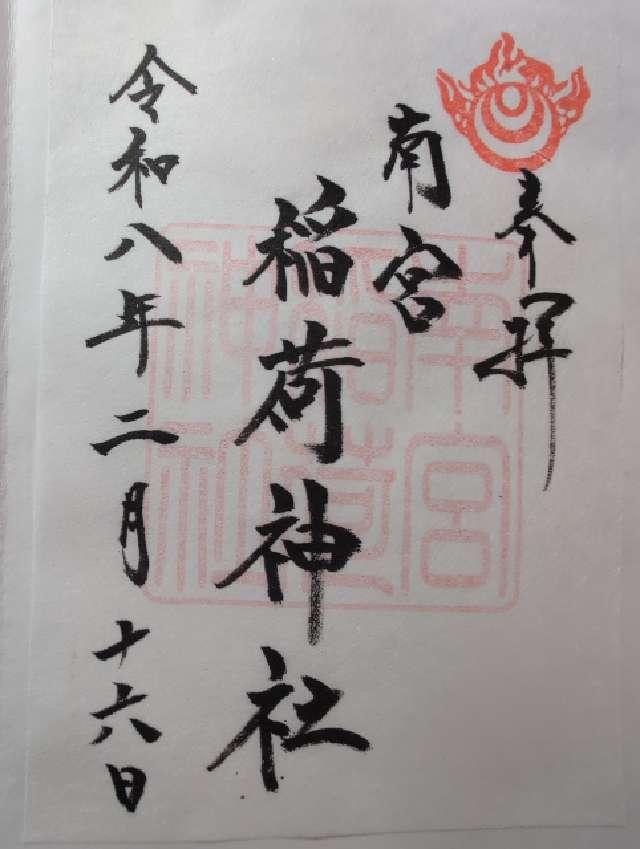 奉拝
南宮
稲荷神社
令和八年二月十六日
南宮
稲荷
神社